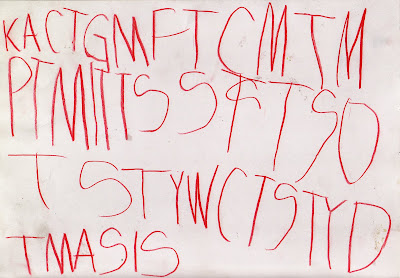 KACTGMFTCMTM
PTMITTSSFTSO
TSTYWCTSTYD
TMASIS